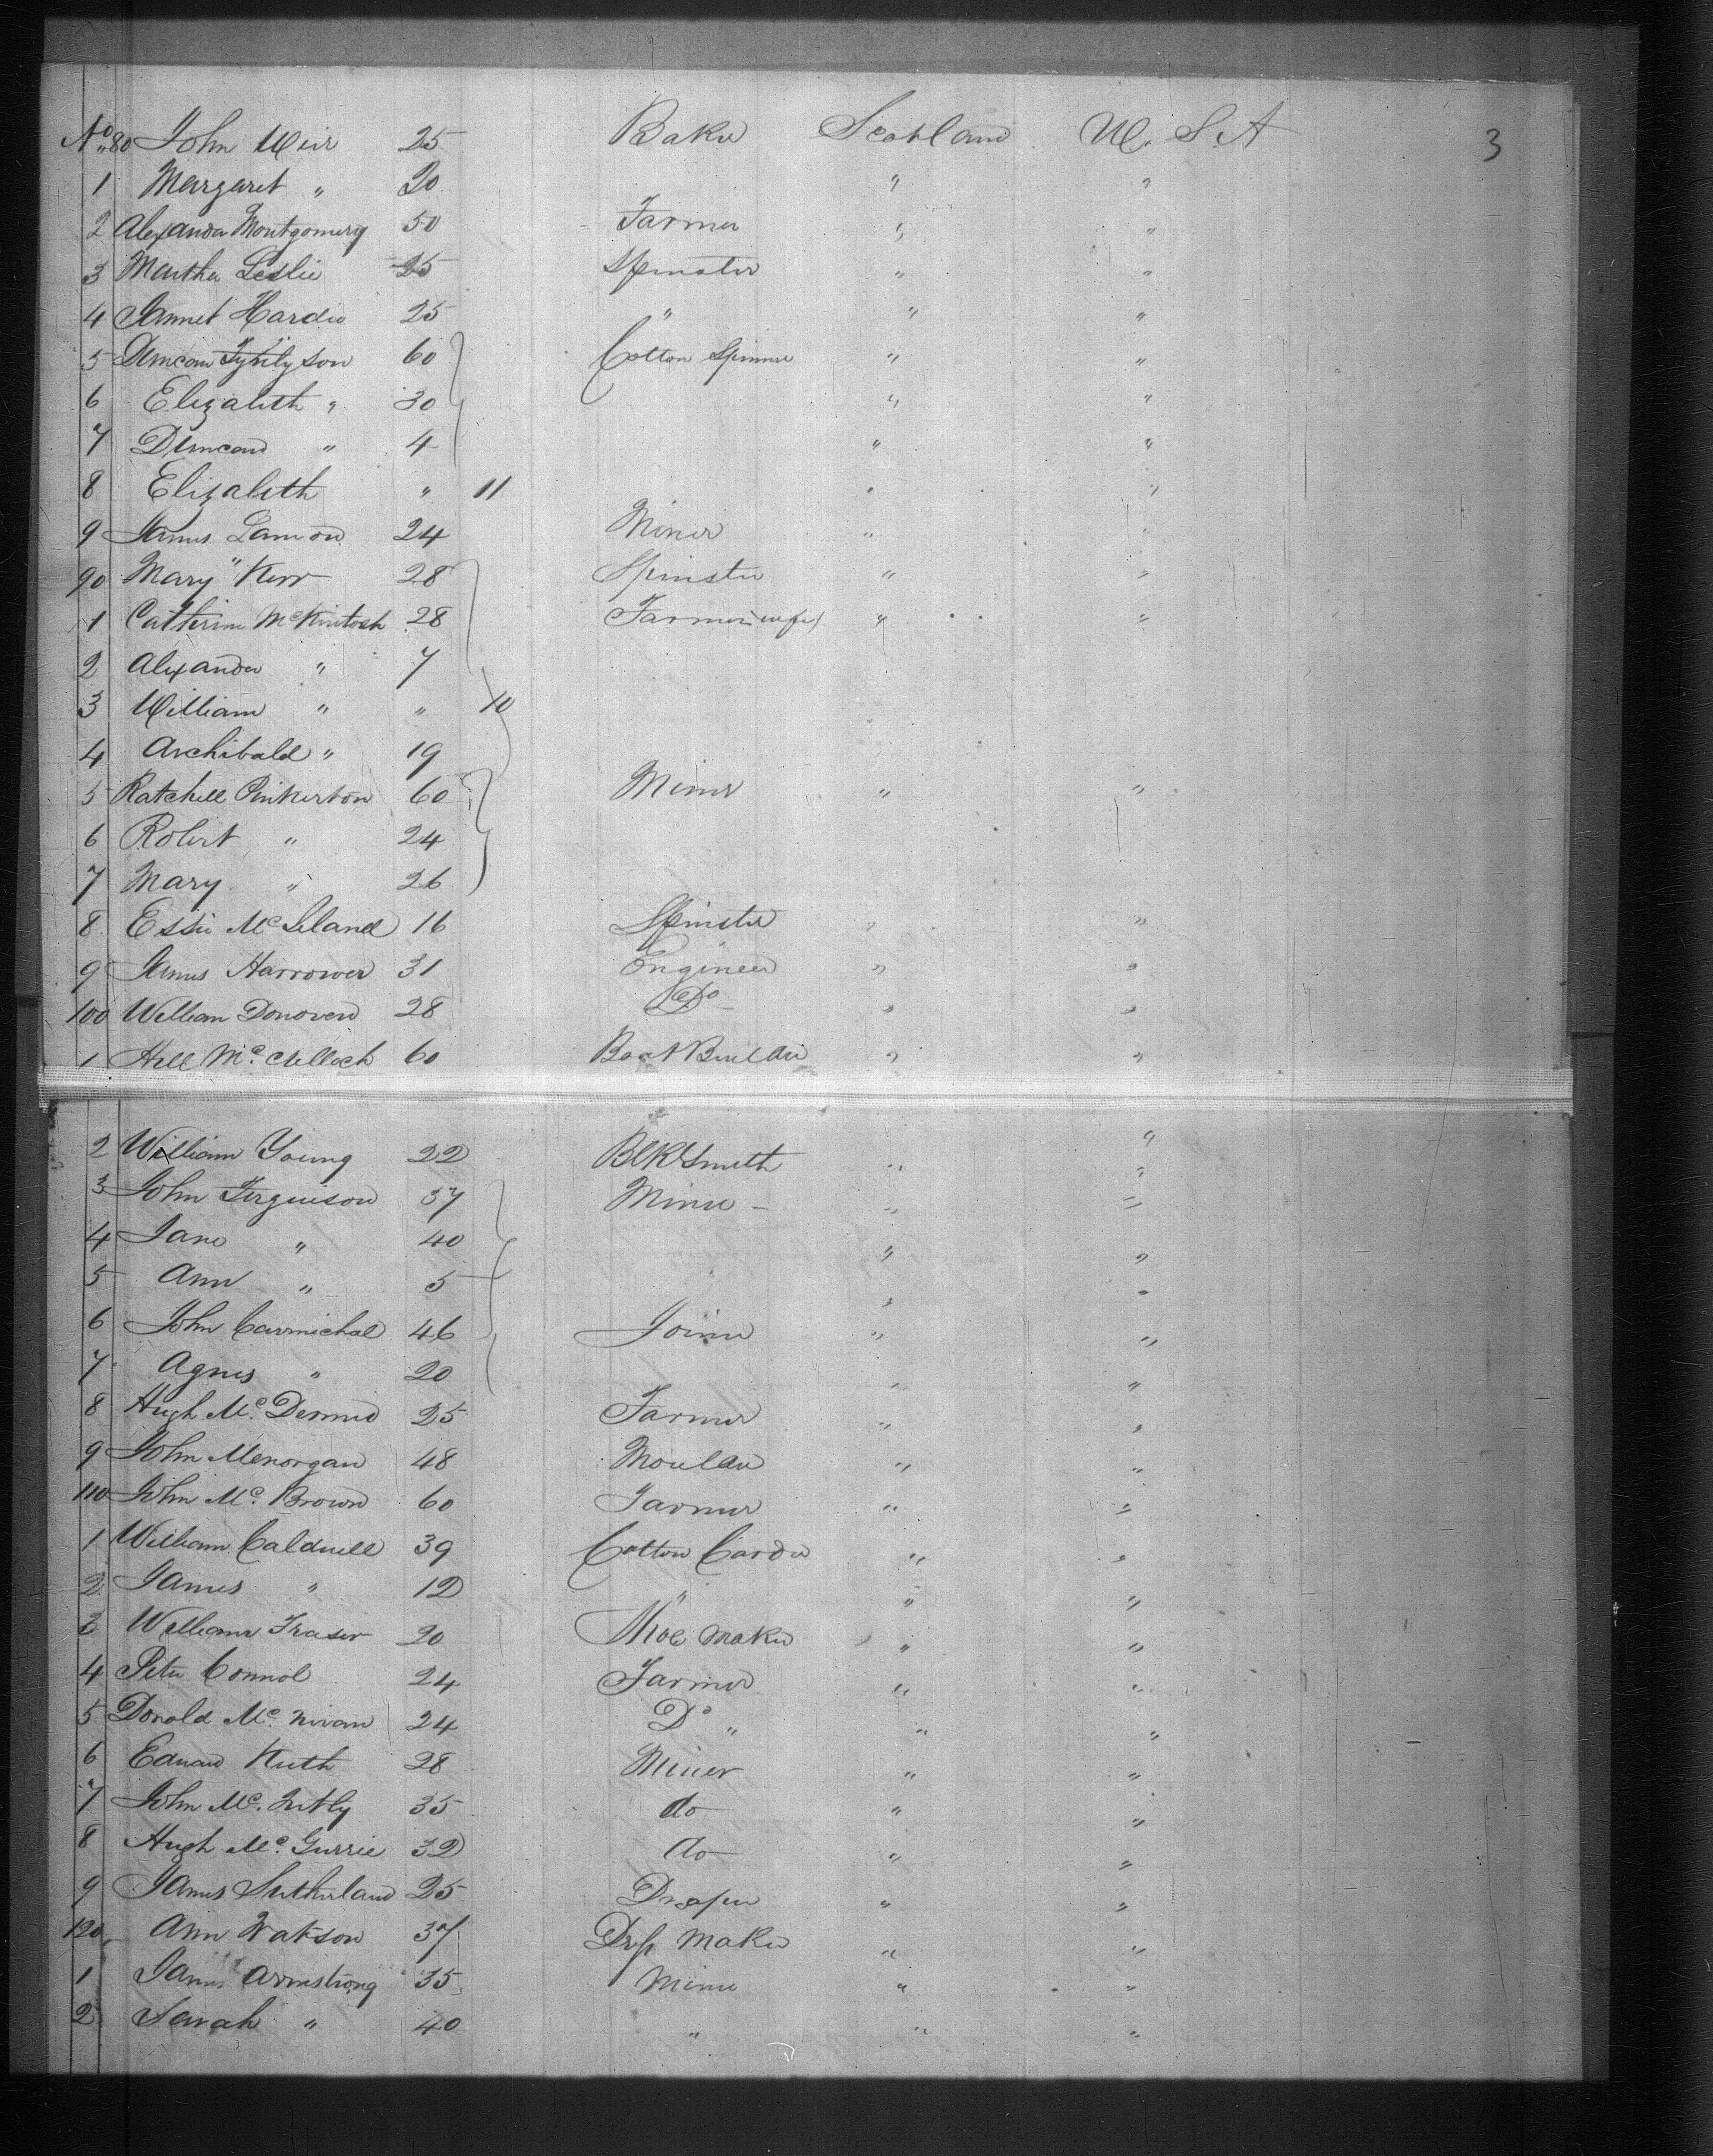 3
No. 80 John Weir 25 Baker Scotland U. S. A
1 Margaret " 20 " "
2 Alexander Montgomery 50 Farmer " "
3 Martha Leslie 25 Spinster " "
4 Jannet Hardie 25 " " "
5 Duncan 60 Cotton Spinner " "
6 Elizabeth " 30 " "
7 Duncan " 4 " "
8 Elizabeth " 11 " "
9 James Lamon 24 Miner " "
90 Mary Kerr 28 Spinster " "
1 Catherine McKintosh 28 Farmers wife " "
2 Alexander " 7
3 William " " 10
4 Archibald " 19
5 Ratchell Pinkerton 60 Miner " "
6 Robert " 24
7 Mary " 26
8 Essie McLeland 16 Spinster " "
9 James Harrower 31 Engineer " "
100 William Donoven 28 Do " "
1 Hill Mc. Culloch 60 Boat Builder " "
2 William Young 22 BlkSmith " "
3 John Ferguison 37 Miner " "
4 Jane " 40 " "
5 Ann " 5 " "
6 John Carmichal 46 Joiner " "
7 Agnes " 20 " "
8 Hugh Mc. Dermid 25 Farmer " "
9 John Menorgan 48 Moulder " "
110 John Mc. Brown 60 Farmer " "
1 William Caldwell 39 Cotton Carder " "
2 James " 12 " " "
3 William Fraser 20 Shoe Maker " "
4 Peter Connol 24 Farmer " "
5 Donald Mc. Nivan 24 Do " " "
6 Edward Keith 28 Miner " "
7 John Mc. 35 do " "
8 Hugh Mc. Gurrie 32 do " "
9 James Sutherland 25 Draper " "
120 Ann Watson 37 Drs Maker " "
1 James Armstrong 35 Miner " "
2 Sarah " 40 " " "